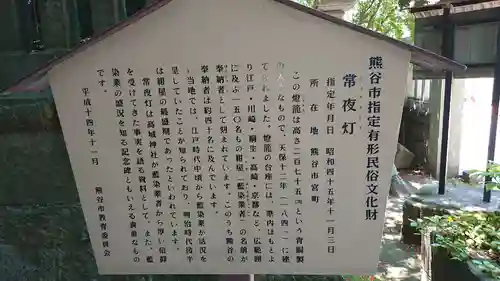 熊谷市指定有形民俗文化財
常夜灯
指定年月日 昭和四十五年十一月三日
所在地 熊谷市宮町
この燈籠は高さ二百七十五㎝という青銅製
の大きなもので、天保十二年(一八四一)に建
てられました。燈籠の台座には、県内はもとよ
り江戸・川崎・桐生・高崎・京都など、広範囲
に及ぶ一五〇名もの紺屋(藍染業者)の名前が
奉納者として刻まれています。このうち熊谷の
奉納者は約四十名に及んでいます。
当地では、江戸時代中頃から藍染業が活況を
呈していたことが知られており、明治時代後半
は紺屋の最盛期であったといわれています。
常夜灯は高城神社が藍染業者から厚い信仰
を受けてきた事実を語る資料として、また、藍
染業の盛況を知る記念碑ともいえる貴重なもの
です。
平成十四年十一月
熊谷市教育委員会